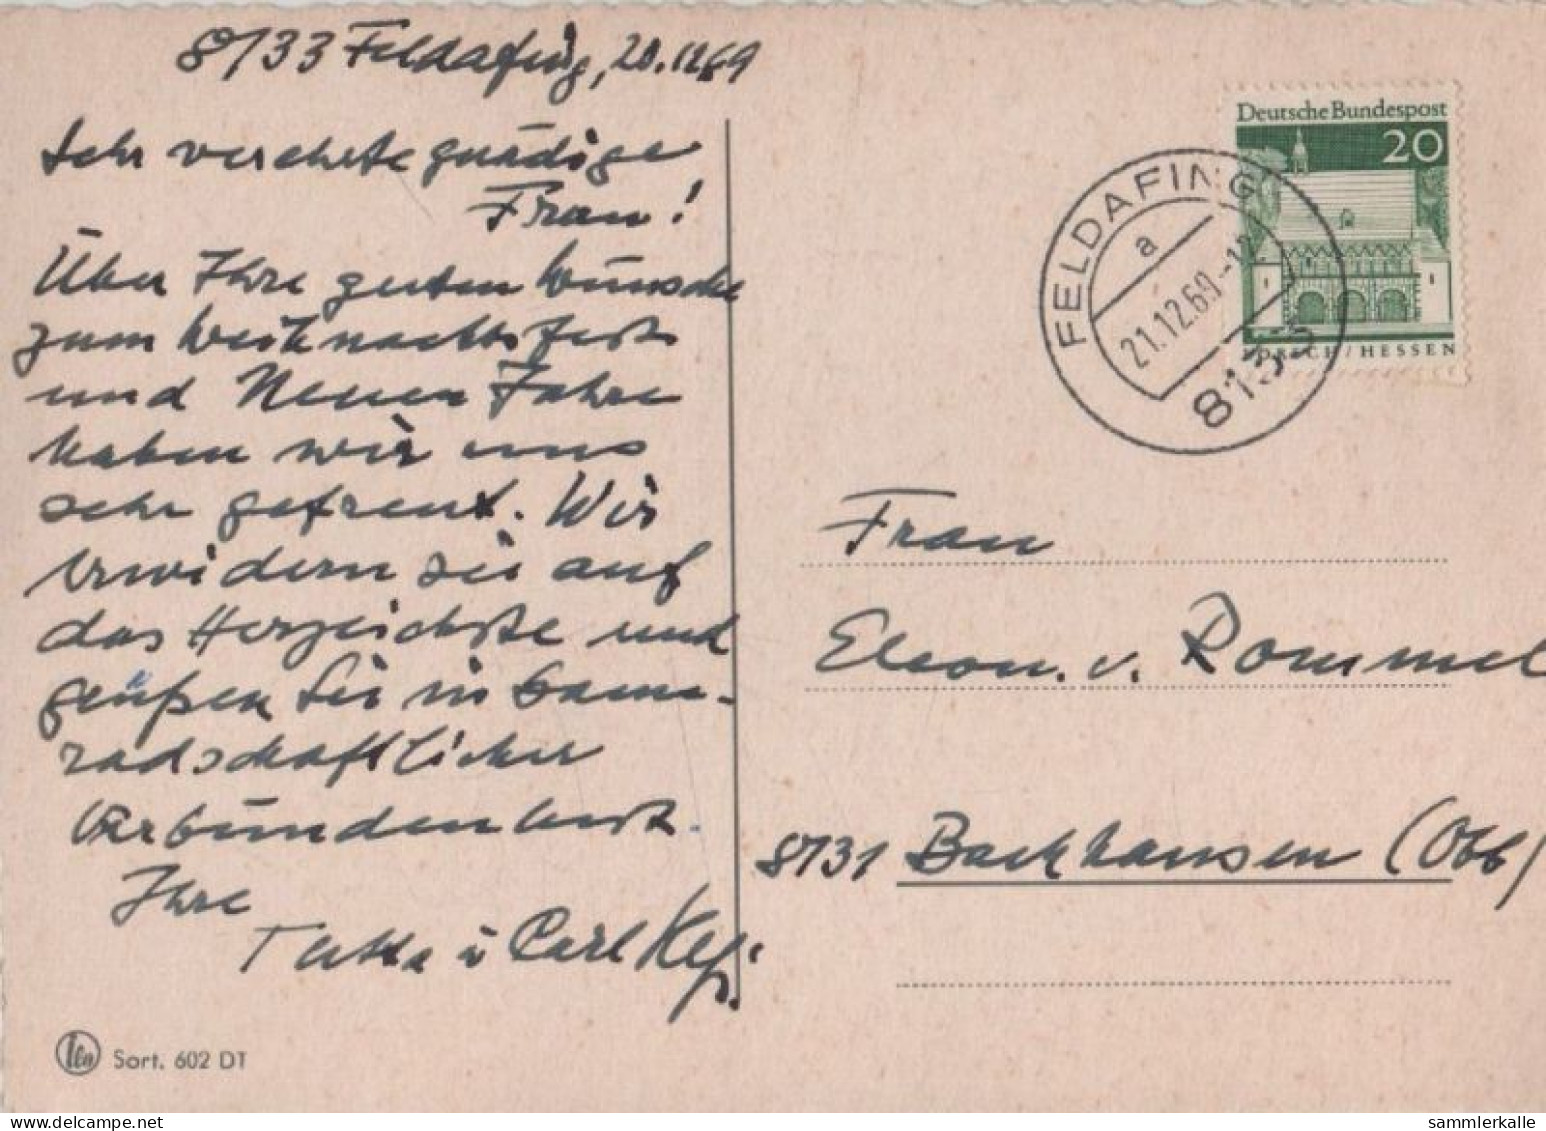 8133 Feldafing, 20.12.69
Sehr verehrte gnädige
Frau!
Über Ihre guten Wünsche
zum Weihnachtsfest
und Neuen Jahre
haben wir uns
sehr gefreut. Wir
erwidern sie auf
das Herzlichste und
grüßen Sie in kame-
radschaftlicher
Verbundenheit.
Ihre
u Carl
Sort. 602 DT
Deutsche Bundespost
20
LORSCH / HESSEN
FELDAFING
a
21.12.69.-12
8133
Frau
Eleon. v. Rommel
8131 Bachhausen (Obb)
sammlerkalle